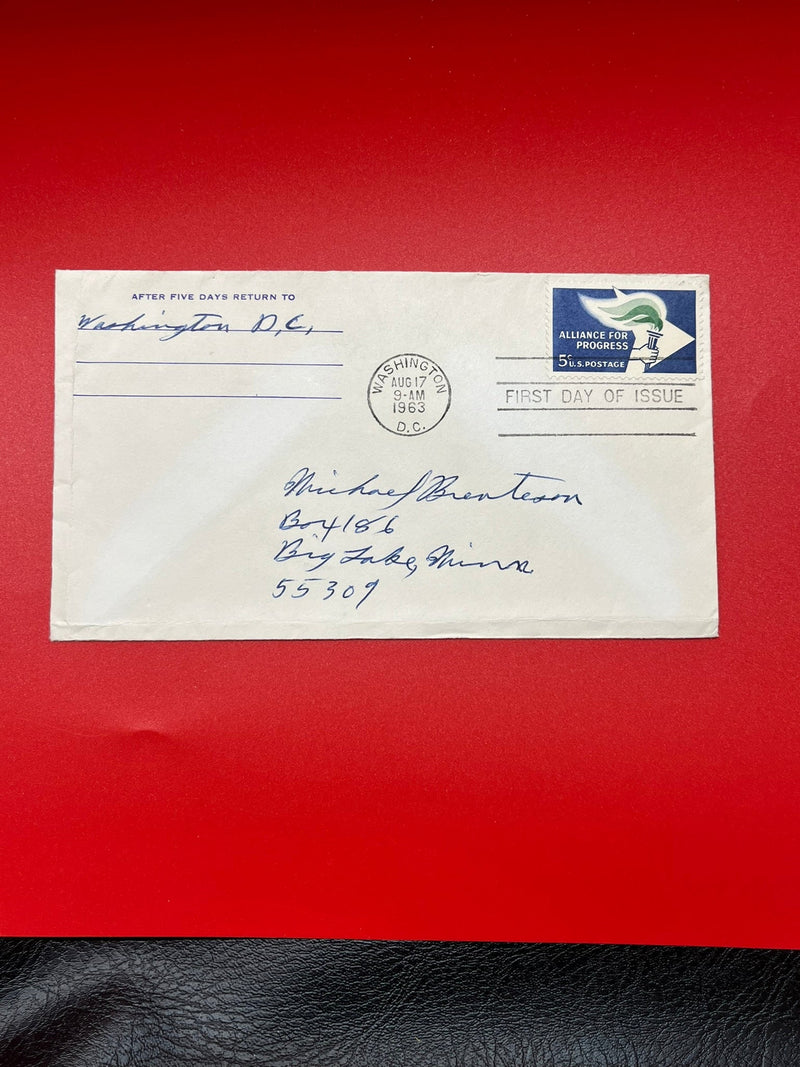 AFTER FIVE DAYS RETURN TO
Washington D.C.
ALLIANCE FOR
PROGRESS
5¢ U.S. POSTAGE
WASHINGTON
AUG 17
9-AM
1963
D.C.
FIRST DAY OF ISSUE
Michael Brenteson
Box 186
Big Lake, Minn
55309